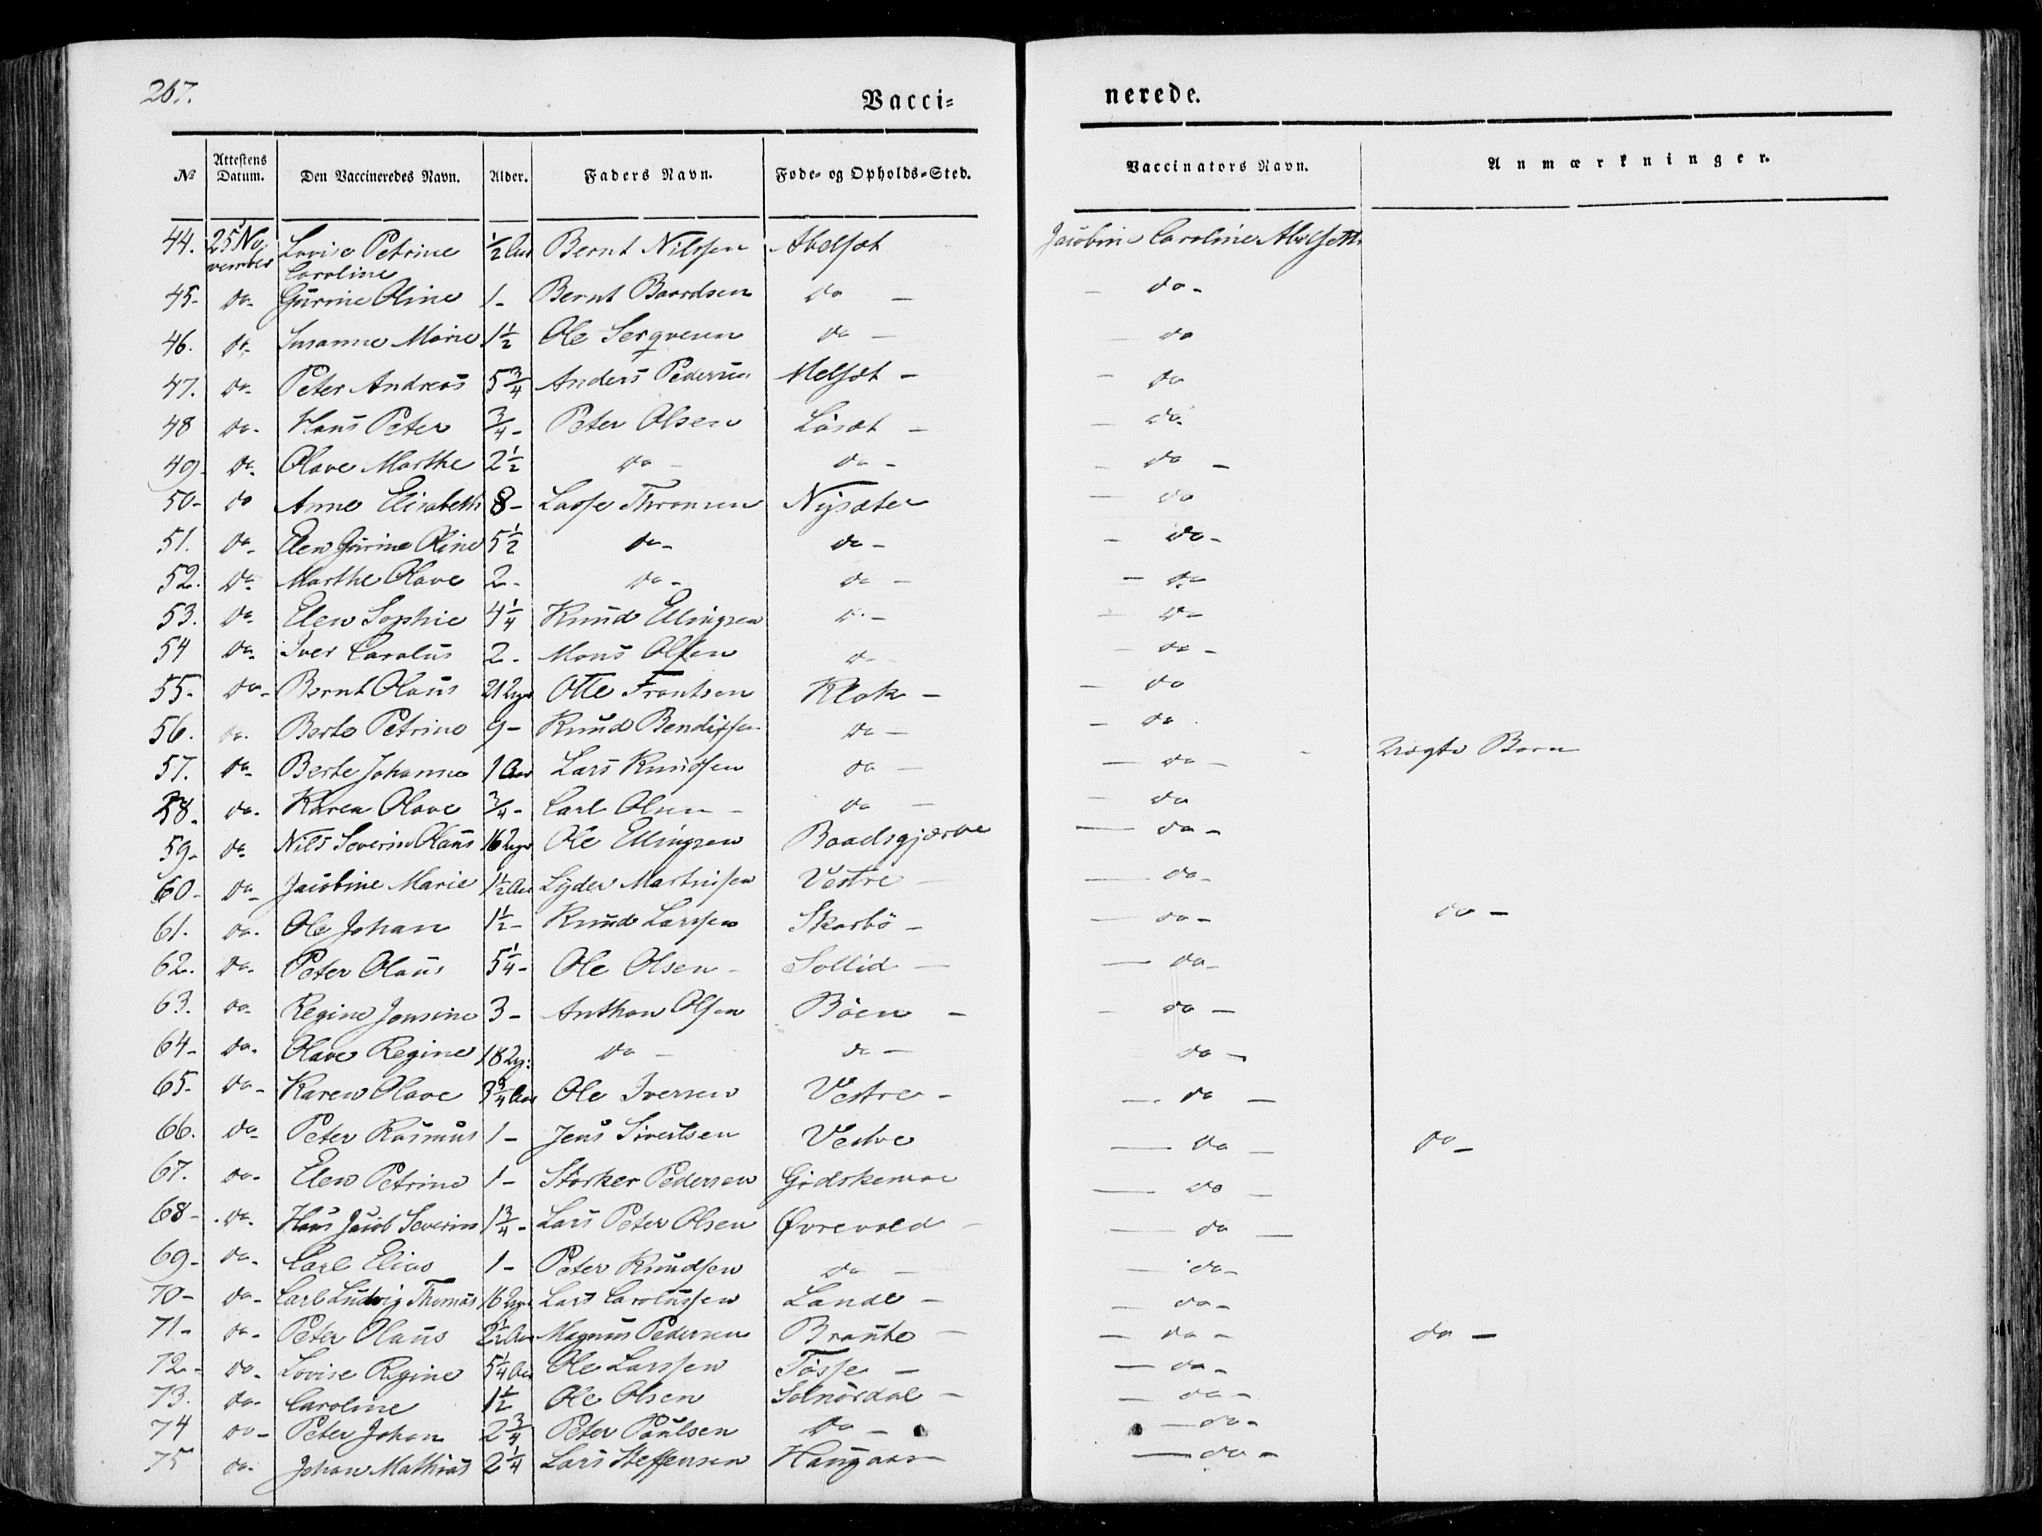 267.
Vacci=nerede.
№ Attestens Datum. Den Vaccineredes Navn. Alder. Faders Navn. Føde= og Opholds=Sted. Vaccinators Navn. Anmærkninger.
44. 25 November Lovise Petrine Caroline ½ Aar Bernt Nilssen Abelsæt Jacobine Caroline Abelseth
45- do- Gurine Oline 1- Bernt Baardsen do - - do-
46. do- Susanne Marie 1½ Ole do - - do
47. do- Peter Andreas 5¾ Anders Pedersen Melsæt - - do
48 do- Hans Peter ¾- Peter Olsen Løsæt - - do-
49- do- Olave Marthe 2½ do - do - - do -
50- do Anne Elisabeth 8- Lasse Thronsen Nysæter - do
51. do- Elen Gurine Oline 5½ do- do - - do-
52. do- Marthe Olave 2- do- do - - do
53. do- Elen Sophie 4¼ Knud Ellingsen do - - do
54 do- Iver Carolus 2- Mons Olsen do - do -
55- do- Bernt Olaus 21 Ugr Otte Frantsen Klok - - do
56. do- Berte Petrine 9- Knud Bendixsen do - - do
57. do- Berte Johanne 1 Aar Lars Knudsen do - - do - Uægte Barn
58. do- Karen Olave ¾- Carl Olsen - do - - do
59- do- Nils Severin Olaus 16 Ugr Ole Ellingsen Baadsgjærde - do -
60- do- Jacobine Marie 1½ Aar Lyder Martinsen Vestre - - do-
61. do- Ole Johan 1½- Knud Larssen Skarbø - - do - do -
62. do- Peter Olaus 5¼- Ole Olsen - Sollid - - do-
63. do- Regine Jensine 3- Anthon Olsen Böen - - do -
64- do- Olave Regine 18 Ug: do - do - do -
65- do- Karen Olave 3¾ Aar Ole Iversen Vestre - - do -
66. do- Peter Rasmus 1- Jens Sivertsen Vestre - do - do -
67. do- Elen Petrine 1- Storker Pedersen Gjødskemoe - do -
68- do- Hans Jacob Severin 1¾- Lars Peter Olsen Øvrevold - - do -
69- do- Carl Elias 1- Peter Knudsen do - - do-
70- do- Carl Ludvig Thomas 16 Ugr Lars Carolussen Lande - - do-
71- do- Peter Olaus 2½ Aar Magnus Pedersen Braute - - do - do -
72- do- Lovise Regine 5¼ Aar Ole Larssen Tøsse - - do-
73. do- Caroline 1½ Ole Olsen Solnørdal - - do -
74 do- Peter Johan 2¾ Peter Paulsen do - - do-
75 do- Johan Mathias 2¼ Lars Steffensen Haugaas - do -